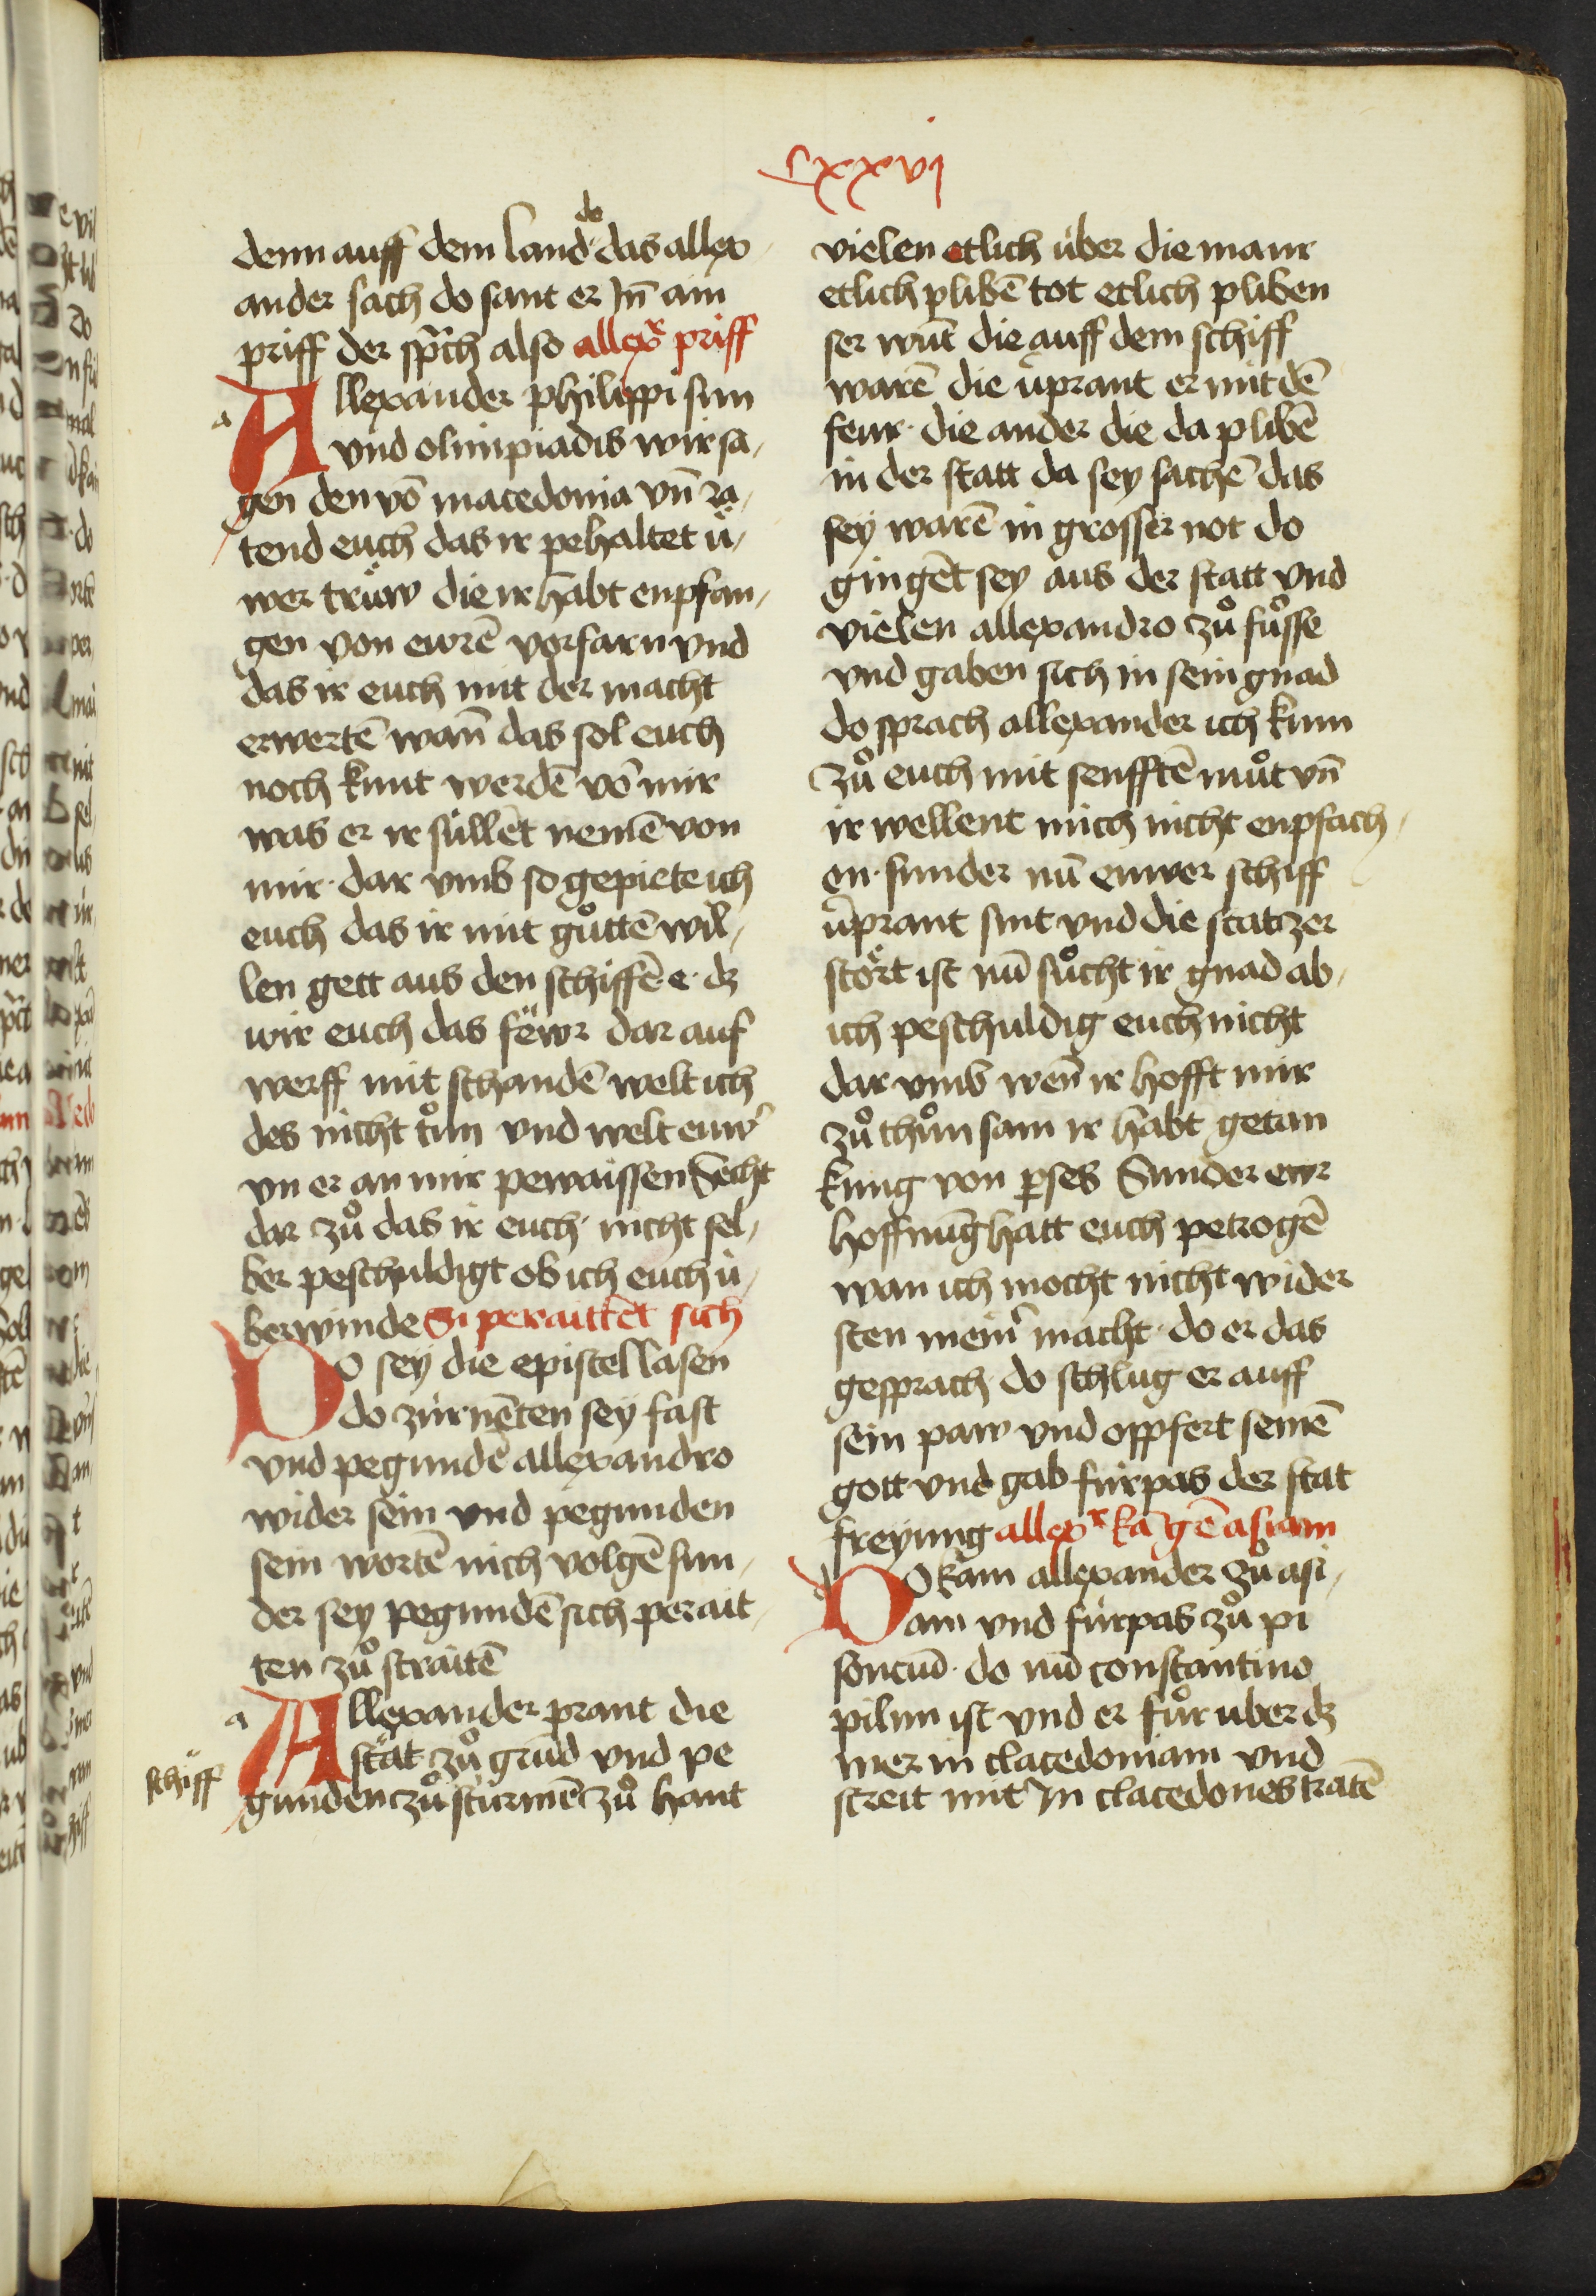 cxxvi
denn auff dem land do das allex
ander sach do sant er Jn̄ ain
priff der sp̄ch also allexr̄ priff
Allexander philippi sun
vnd olimpiadis wir sa,
gen den vō macedonia vn̄ ra,
tend euch das ir pehaltet ü,
wer trüw die ir habt enpfan,
gen von ewrē vorfarn vnd
das ir euch mit der macht
erwertē wan̄ das sol euch
noch kunt werdē vō mir
was er ir süllēt nemē von
mir · dar vmb so gepiete ich
euch das ir mit gůttē wil,
len gett aus den schiffē · e · dz
wir euch das fewr dar auf
werff mit schandē welt ich
des nicht tůn vnd welt euw̄
vn er an mir pewaissen Secht
dar zů das ir euch · nicht sel,
ber peschuldigt ob ich euch ü,
berwinde Si peraittēt sich
Do sey die epistel lasen
do zürnēten sey fast
vnd pegundē allexandro
wider sein vnd pegunden
sein wortē nich volgē sun,
der sey pegundē sich perait,
ten zů straitē
a
Allexander prant die
stat zů grūd vnd pe
schiff
gunden zů stürmē zů hant
vielen etlich über die maur
etlich plibē tot etlich pliben
ser wūt die auff dem schiff
warē die v̄prant er mit dē
feur · die ander die da plibē
in der statt da sey sachē das
sey warē in grosser not do
gingēt sey aus der statt vnd
vielen allexandro zů fůsse
vnd gaben sich in sein gnad
do sprach allexander ich kum
zů euch mit senfftē můt vn̄
ir wellent mich nicht enpfach,
en · sunder nū euwer schiff
v̄prant sint vnd die stat zer
stört ist nū sůcht ir gnad ab,
ich peschuldig euch nicht
dar vmb wen̄ ir hofft mir
zů thůn sam ir habt getan
kung von pses Sunder ewr
hoffnūg hatt euch petrogē
wan ich mocht nicht wider
sten mein̄ macht · do er das
gesprach do schlug er auff
sein paw vnd opfert seinē
gott vnd gab fürpas der stat
freyung allexr̄ kā gē asiam
Do kam allexander zů asi,
am vnd fürpas zů pi
soncuū · do nū constantino
pilnn ist vnd er fůr uber dz
mer in clacedoniam vnd
streit mit Jn clacedones tratē